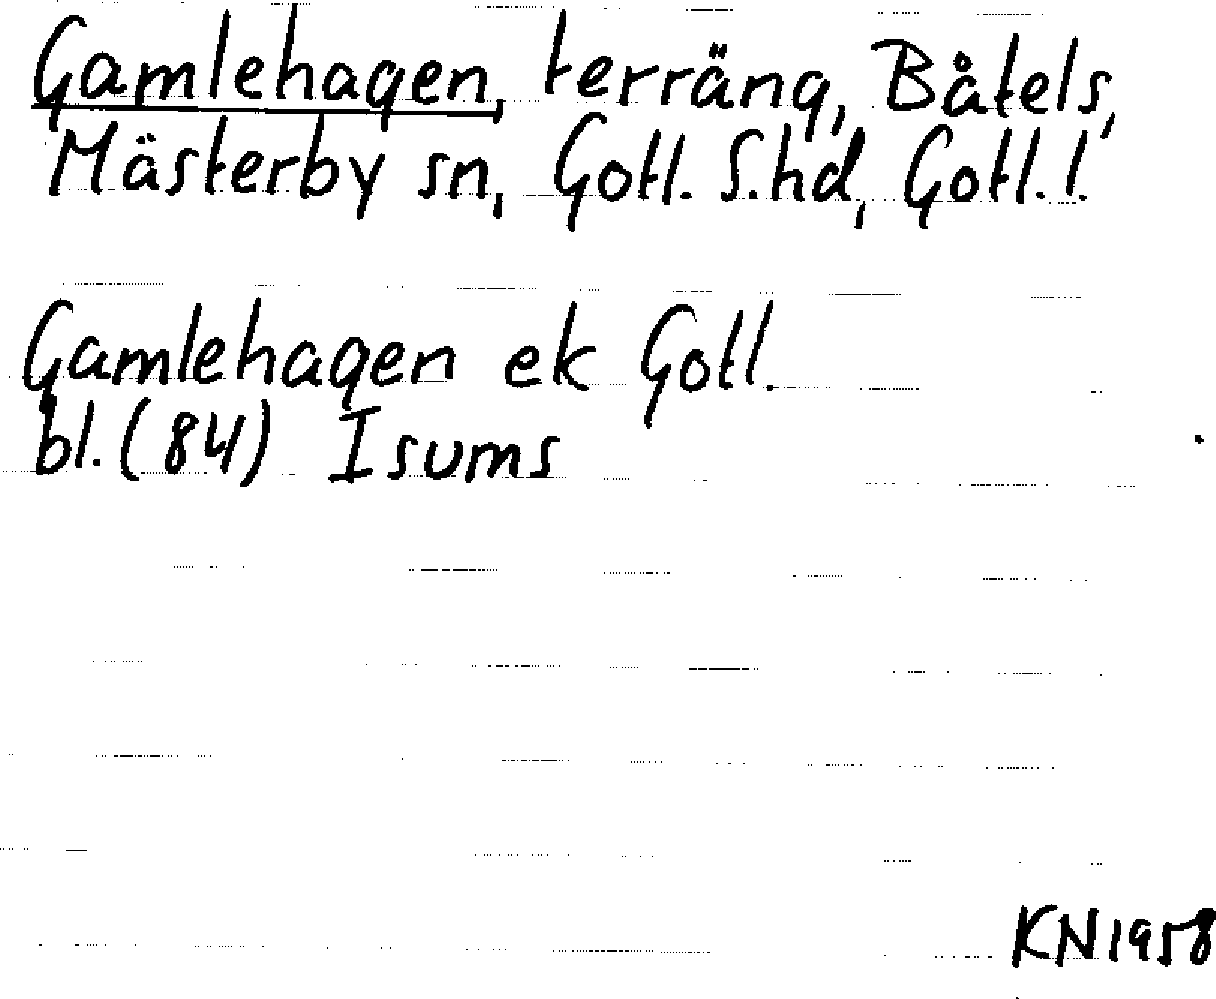 Gamlehagen, terräng, Båtels,
Mästerby sn, Gotl. S.hd, Gotl. l.
Gamlehagen ek Gotl.
bl. (84) Isums
KN 1958